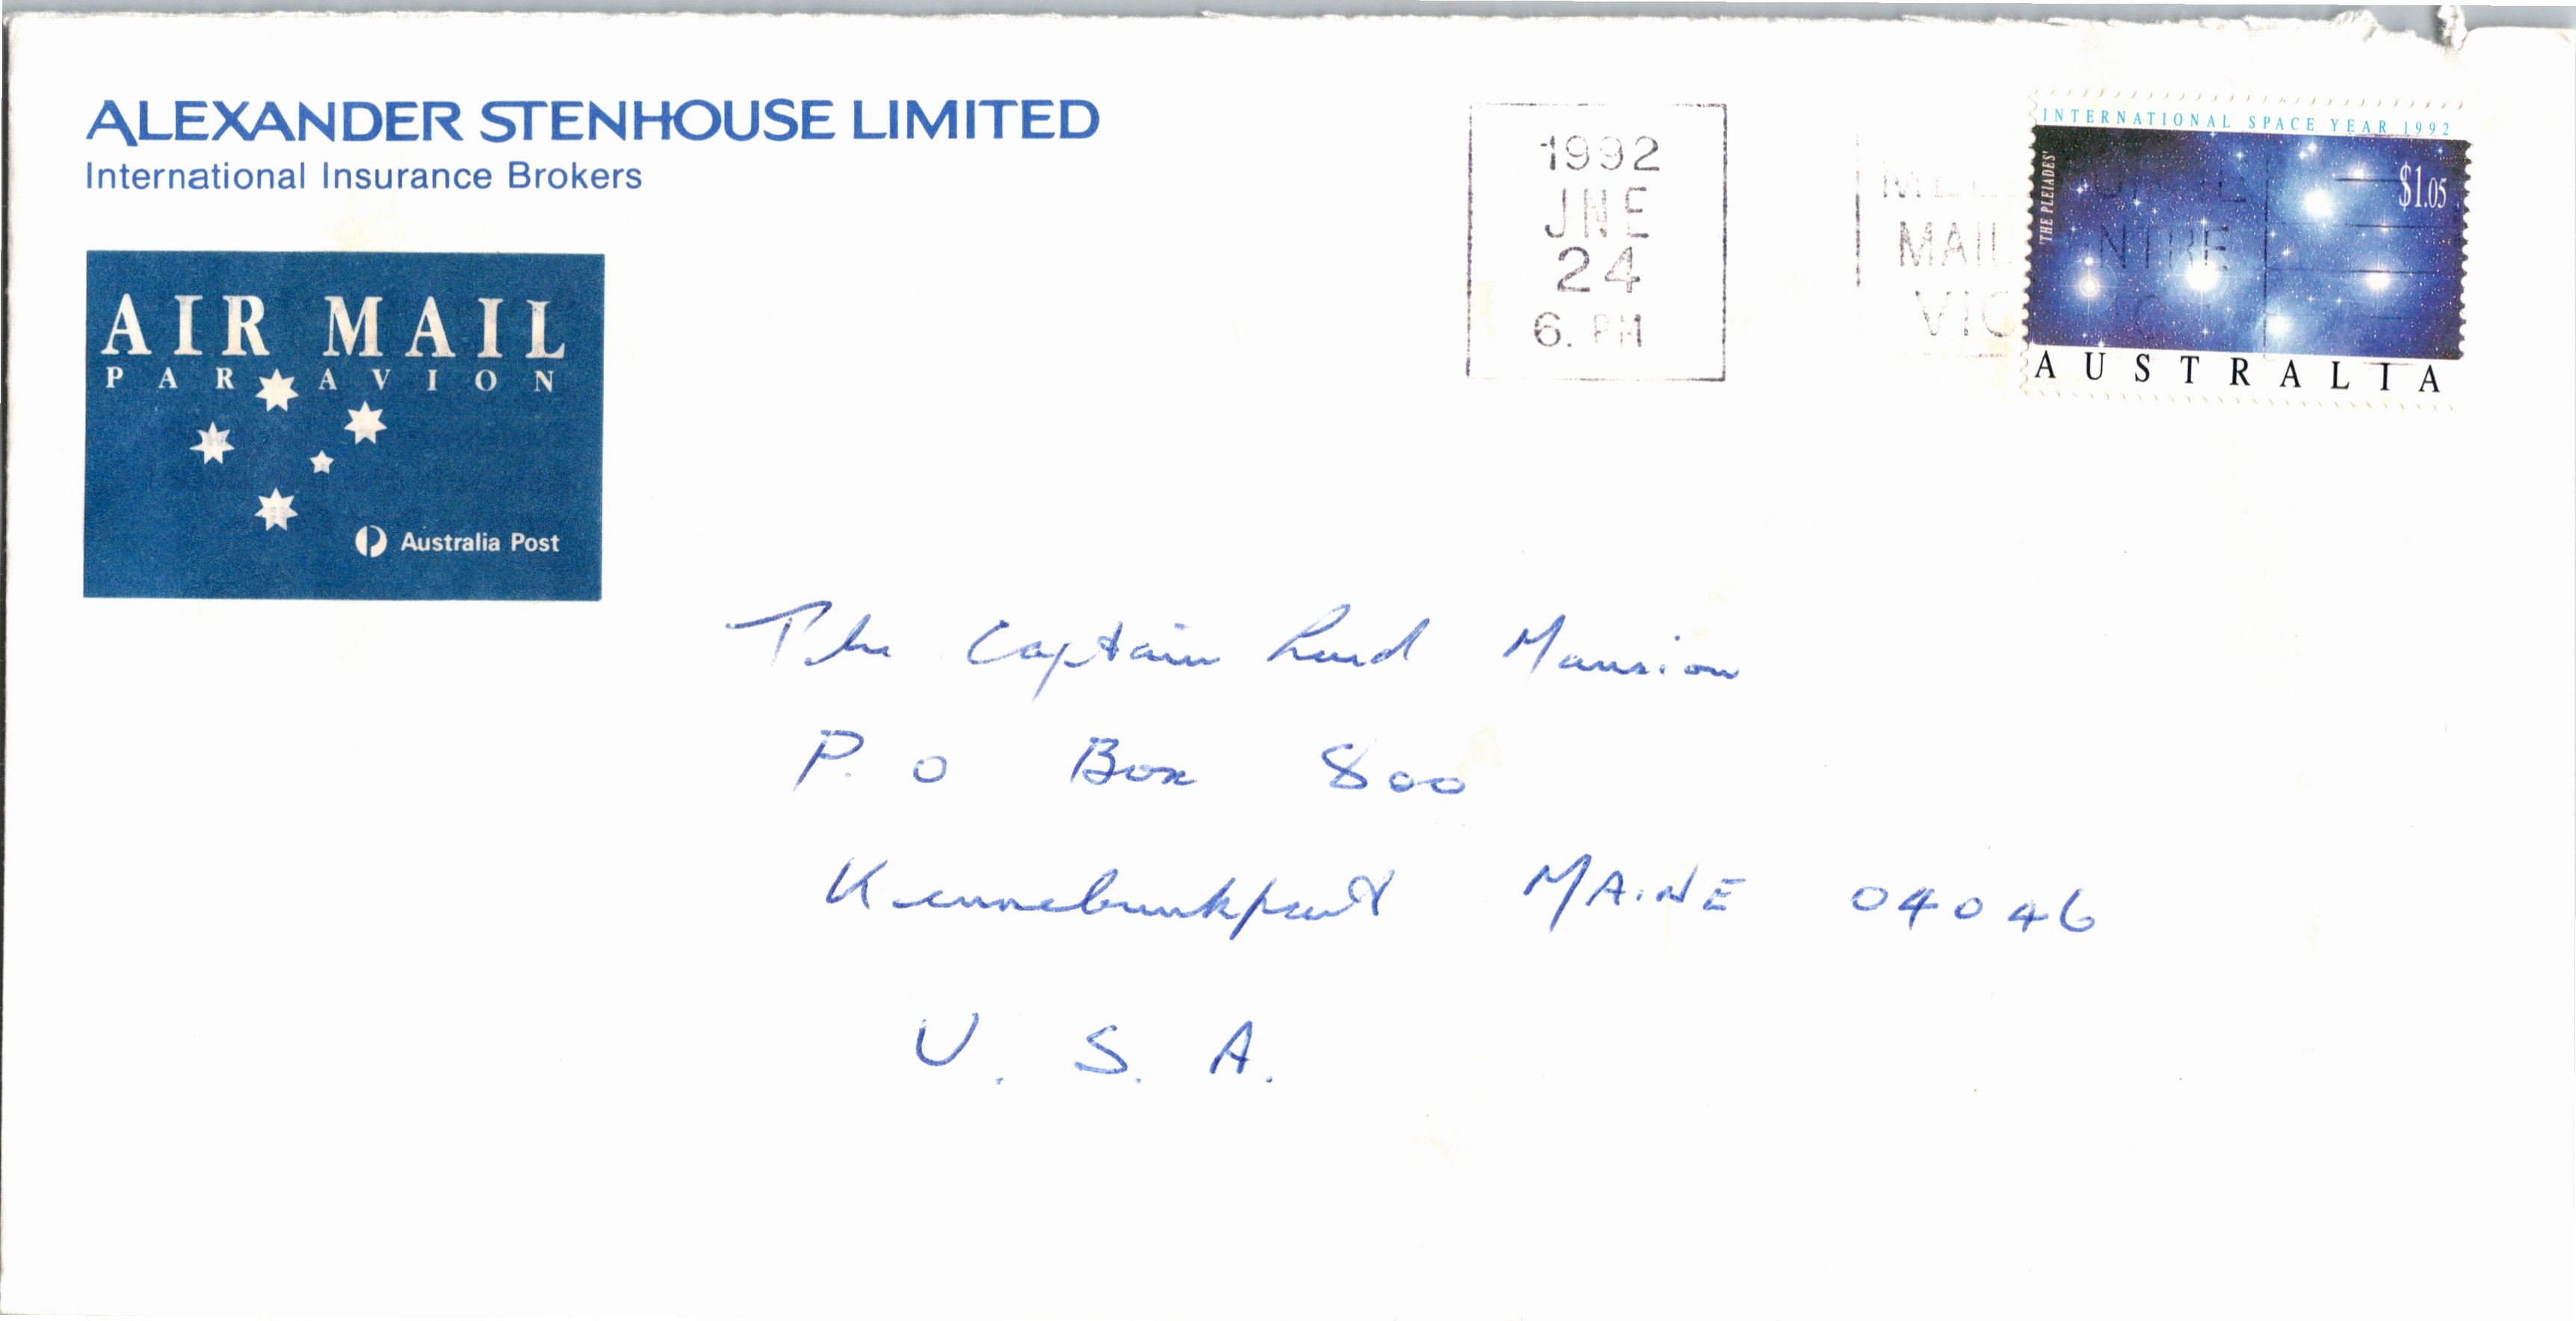 ALEXANDER STENHOUSE LIMITED
International Insurance Brokers
AIR MAIL
PAR AVION
Australia Post
1992
JNE
24
6. PM
MAIL
VIC
INTERNATIONAL SPACE YEAR 1992
THE PLEIADES
$1.05
AUSTRALIA
The Captain Lord Mansion
P. O Box 800
Kennebunkport MAINE 04046
U. S. A.